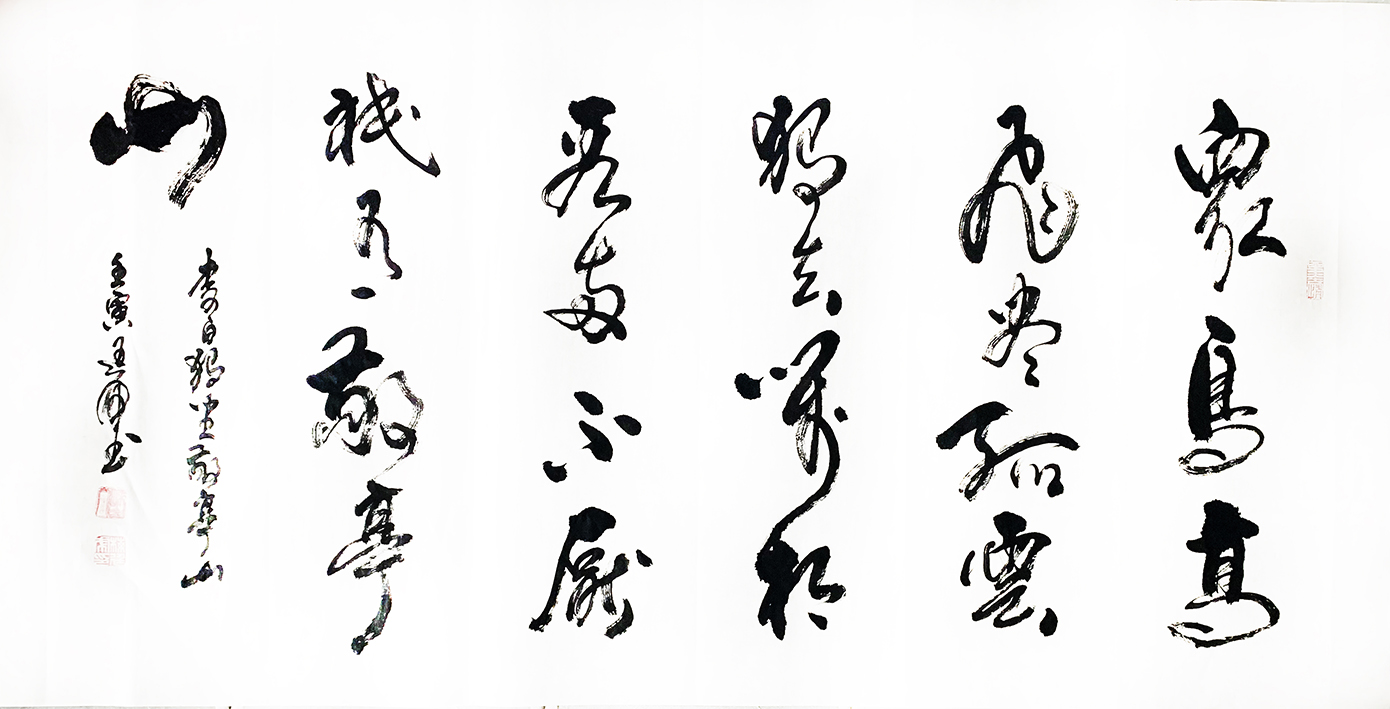 眾鳥高
飛盡孤雲
獨去閒相
看兩不厭
祇有敬亭
山
李白獨坐敬亭山
壬寅